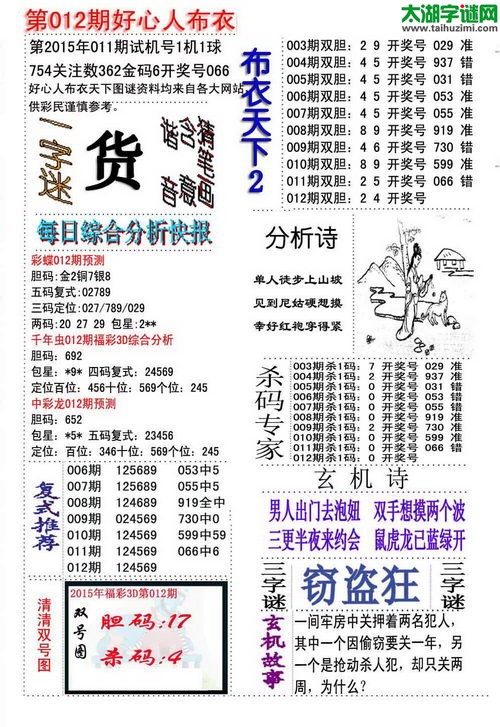 太湖字谜网
www.taihuzimi.com
第012期好心人布衣
第2015年011期试机号1机1球
754关注数362金码6开奖号066
好心人布衣天下图谜资料均来自各大网站,
供彩民谨慎参考。
一字迷
货
猜含音
猪笔画意
每日综合分析快报
彩蝶012期预测
胆码:金2铜7银8
五码复式:02789
三码定位:027/789/029
两码:20 27 29 包星:2**
千年虫012期福彩3D综合分析
胆码: 692
包星: *9* 四码复式: 24569
定位百位: 456十位: 569个位: 245
中彩龙012期预测
胆码: 652
包星: *5* 五码复式: 23456
定位: 百位: 346十位: 569个位: 245
复式推荐
006期 125689 053中5
007期 125689 055中5
008期 124689 919全中
009期 024569 730中0
010期 124569 599中59
011期 124569 066中6
012期 124569
清清双号图
2015年福彩3D第012期
双号图
胆码:17
杀码:4
布衣天下2
003期双胆: 2 9 开奖号 029 准
004期双胆: 4 5 开奖号 937 错
005期双胆: 4 5 开奖号 031 错
006期双胆: 4 5 开奖号 053 准
007期双胆: 4 5 开奖号 055 准
008期双胆: 8 9 开奖号 919 准
009期双胆: 4 6 开奖号 730 错
010期双胆: 8 9 开奖号 599 准
011期双胆: 4 5 开奖号 066 错
012期双胆: 2 4 开奖号
分析诗
单人徒步上山坡
见到尼姑硬想摸
幸好红袍字得紧
杀码专家
003期杀1码: 7 开奖号 029 准
004期杀1码: 2 开奖号 937 准
005期杀1码: 0 开奖号 031 错
006期杀1码: 0 开奖号 053 错
007期杀1码: 0 开奖号 055 错
008期杀1码: 9 开奖号 919 错
009期杀1码: 0 开奖号 730 错
010期杀1码: 0 开奖号 599 准
011期杀1码: 0 开奖号 066 错
012期杀1码: 0 开奖号
玄机诗
男人出门去泡妞 双手想摸两个波
三更半夜来约会 鼠虎龙已蓝绿开
三字谜
窃盗狂
三字谜
玄机故事
一间牢房中关押着两名犯人,
其中一个因偷窃要关一年,另
一个是抢动杀人犯,却只关两
周,为什么?